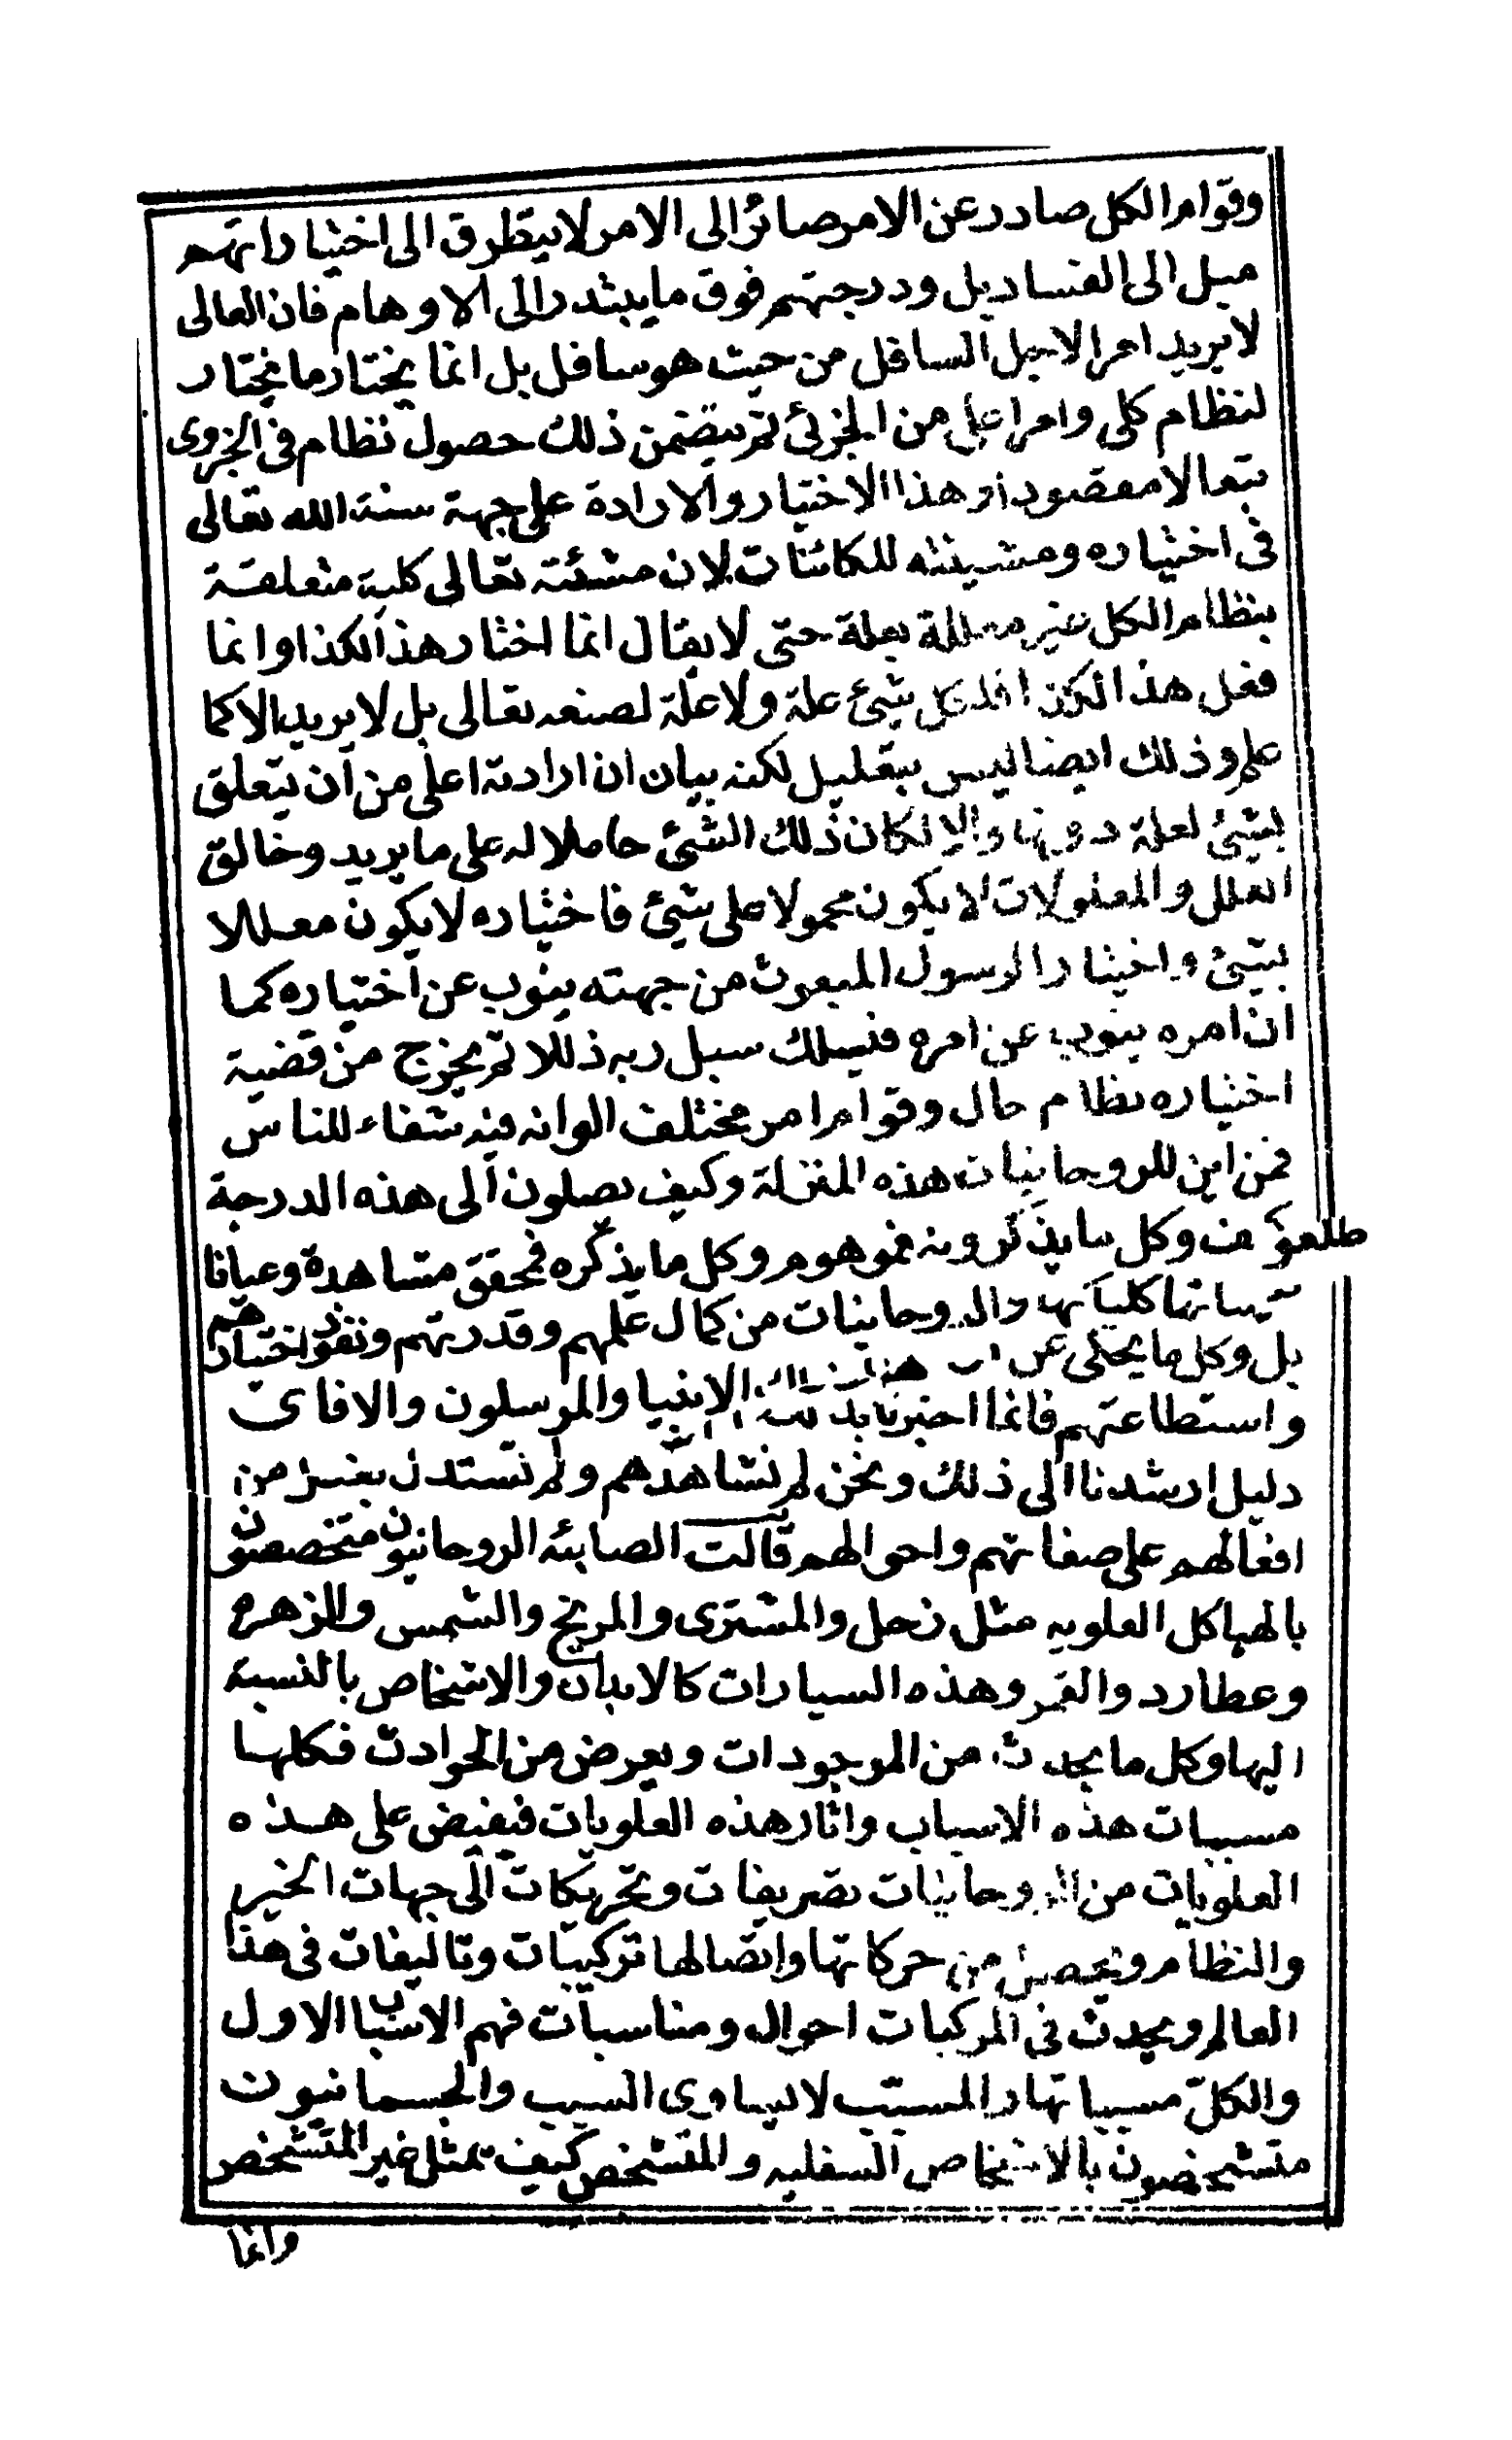 وقوام الكل صادر عن الامر صائرا الى الامر لا يتطرق الى اختياراتهم
ميل الى الفساد بل ودرجتهم فوق ما يبتدر الى الاوهام فان العالى
لا يريد امرا لاجل السافل من حيث هو سافل بل انما يختار ما يختار
لنظام كلى وامر اعلى من الجزئى ثم يتضمن ذلك حصول نظام فى الجزوى
تبعا لا مقصودا وهذا الاختيار والارادة على جهة سنة الله تعالى
فى اختياره ومشيئته للكائنات لان مشئته تعالى كلية متعلقة
بنظام الكل غير معللة بعلة حتى لا يقال انما اختار هذا لكذا وانما
فعل هذا لكذا فلكل شئ علة ولا علة لصنعه تعالى بل لا يريد الا كما
علم وذلك ايضا ليس بتعليل لكنه بيان ان ارادته اعلى من ان يتعلق
بشئ لعلة دونها والا لكان ذلك الشئ حاملا له على ما يريد وخالق
العلل والمعلولات لا يكون محمولا على شئ فاختياره لا يكون معللا
بشئ واختيار الرسول المبعوث من جهته ينوب عن اختياره كما
ان امره ينوب عن امره فيسلك سبل ربه ذللا ثم يخرج من قضية
اختياره نظام حال وقوام امر مختلف الوانه فيه شفاء للناس
فمن اين للروحانيات هذه المنزلة وكيف يصلون الى هذه الدرجة
وكل ما يذكرونه فموهوم وكل ما يذكره فمحقق مشاهدة وعيانا
بل وكل ما يحكى عن الروحانيات من كمال علمهم وقدرتهم ونفوذ اختيارهم
واستطاعتهم فانما اخبرنا بذلك الانبيا والمرسلون والا فاى
دليل ارشدنا الى ذلك ونحن لم نشاهدهم ولم نستدل بفعل من
افعالهم على صفاتهم واحوالهم قالت الصابئه الروحانيون متخصصون
بالهياكل العلويه مثل زحل والمشترى والمريخ والشمس والزهره
وعطارد والقمر وهذه السيارات كالابدان والاشخاص بالنسبة
اليها وكل ما يحدث من الموجودات ويعرض من الحوادث فكلها
مسببات هذه الاسباب واثار هذه العلويات فيفيض على هذه
العلويات من الروحانيات تصريفات وتحريكات الى جهات الخير
والنظام ويحصل من حركاتها واتصالها تركيبات وتاليفات فى هذا
العالم ويحدث فى المركبات احوال ومناسبات فهم الاسباب الاول
والكل مسبباتها والمسبب لا يساوى السبب والجسمانيون
متشخصون بالاشخاص السفليه والمتشخص كيف يمثل غير المتشخص
وانما